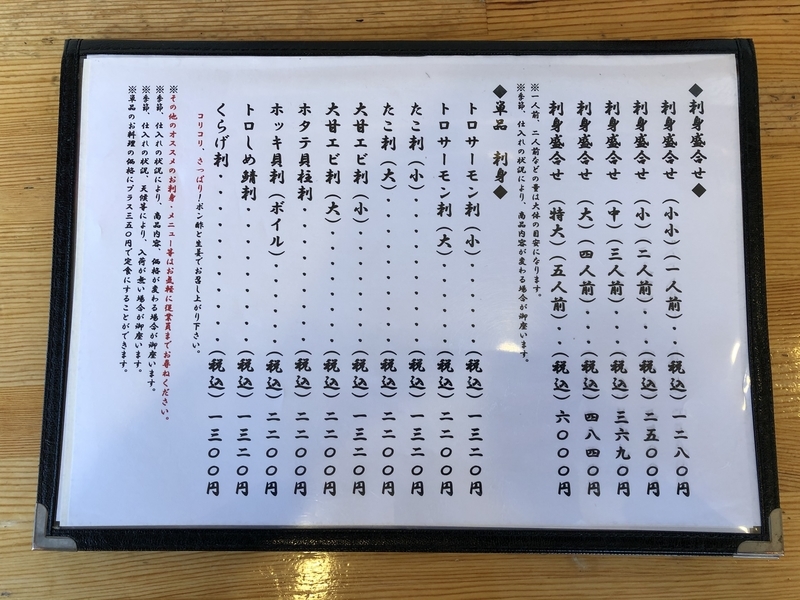 ◆刺身盛合せ◆
刺身盛合せ（小小）（一人前）・・（税込）一二八〇円
刺身盛合せ（小）（二人前）・・・（税込）二五〇〇円
刺身盛合せ（中）（三人前）・・・（税込）三六九〇円
刺身盛合せ（大）（四人前）・・・（税込）四八四〇円
刺身盛合せ（特大）（五人前）・・（税込）六〇〇〇円
※一人前、二人前などの量は大体の目安になります。
※季節、仕入れの状況により、商品内容が変わる場合が御座います。
◆単品 刺身◆
トロサーモン刺（小）・・・・・（税込）一三二〇円
トロサーモン刺（大）・・・・・（税込）二二〇〇円
たこ刺（小）・・・・・・・・（税込）一三二〇円
たこ刺（大）・・・・・・・・（税込）二二〇〇円
大甘エビ刺（小）・・・・・・（税込）一三二〇円
大甘エビ刺（大）・・・・・・（税込）二二〇〇円
ホタテ貝柱刺・・・・・・・（税込）二二〇〇円
ホッキ貝刺（ボイル）・・・・（税込）二二〇〇円
トロしめ鯖刺・・・・・・・（税込）一三二〇円
くらげ刺・・・・・・・・・（税込）一三〇〇円
コリコリ、さっぱり！ポン酢と生姜でお召し上がり下さい。
※その他のオススメのお刺身・メニュー等はお気軽に従業員までお尋ねください。
※季節、仕入れの状況により、商品内容、価格が変わる場合が御座います。
※季節、仕入れの状況、天候等により、入荷が無い場合が御座います。
※単品のお料理の価格にプラス三五〇円で定食にすることができます。